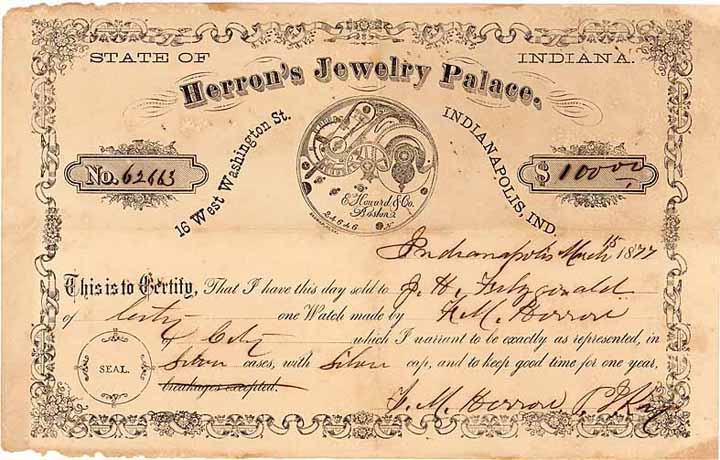 STATE OF INDIANA.
Herron's Jewelry Palace.
16 West Washington St. INDIANAPOLIS, IND.
No. 62663
$ 100 00
E. Howard & Co.
Boston
24646 N
Indianapolis March 15 1877
This is to Certify, That I have this day sold to J. H.
of City one Watch made by F. M. Herron
& City which I warrant to be exactly as represented, in
Silver cases, with Silver cap, and to keep good time for one year,
SEAL.
breakages excepted.
F. M. Herron